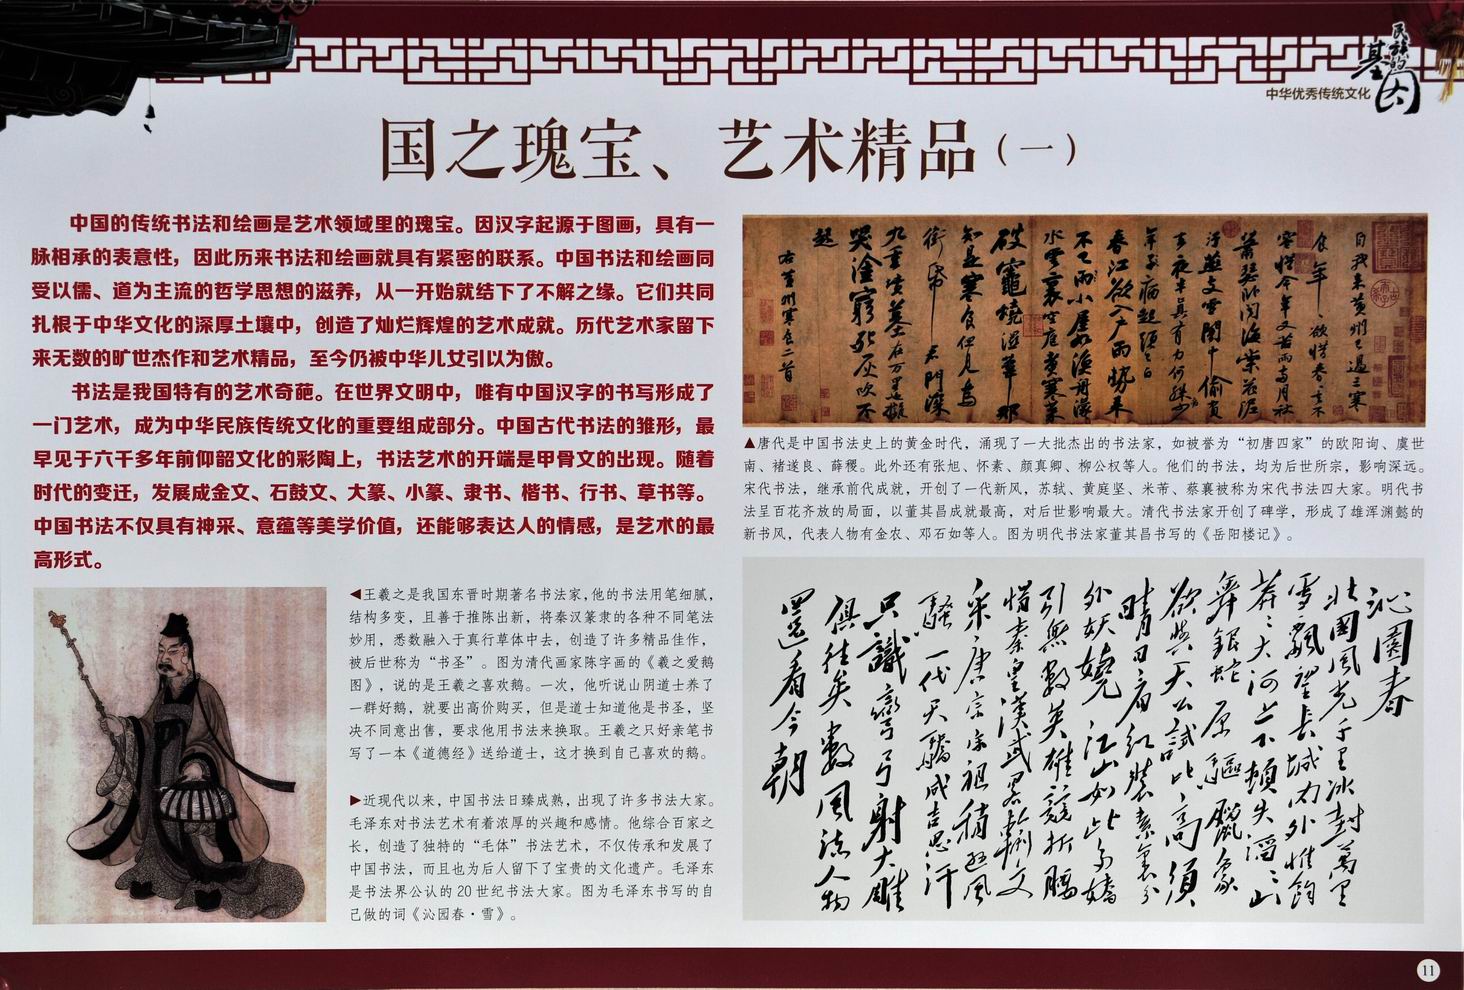 民族的
基因
中华优秀传统文化
国之瑰宝、艺术精品（一）
中国的传统书法和绘画是艺术领域里的瑰宝。因汉字起源于图画，具有一
脉相承的表意性，因此历来书法和绘画就具有紧密的联系。中国书法和绘画同
受以儒、道为主流的哲学思想的滋养，从一开始就结下了不解之缘。它们共同
扎根于中华文化的深厚土壤中，创造了灿烂辉煌的艺术成就。历代艺术家留下
来无数的旷世杰作和艺术精品，至今仍被中华儿女引以为傲。
书法是我国特有的艺术奇葩。在世界文明中，唯有中国汉字的书写形成了
一门艺术，成为中华民族传统文化的重要组成部分。中国古代书法的雏形，最
早见于六千多年前仰韶文化的彩陶上，书法艺术的开端是甲骨文的出现。随着
时代的变迁，发展成金文、石鼓文、大篆、小篆、隶书、楷书、行书、草书等。
中国书法不仅具有神采、意蕴等美学价值，还能够表达人的情感，是艺术的最
高形式。
◀王羲之是我国东晋时期著名书法家，他的书法用笔细腻，
结构多变，且善于推陈出新，将秦汉篆隶的各种不同笔法
妙用，悉数融入于真行草体中去，创造了许多精品佳作，
被后世称为“书圣”。图为清代画家陈字画的《羲之爱鹅
图》，说的是王羲之喜欢鹅。一次，他听说山阴道士养了
一群好鹅，就要出高价购买，但是道士知道他是书圣，坚
决不同意出售，要求他用书法来换取。王羲之只好亲笔书
写了一本《道德经》送给道士，这才换到自己喜欢的鹅。
▶近现代以来，中国书法日臻成熟，出现了许多书法大家。
毛泽东对书法艺术有着浓厚的兴趣和感情。他综合百家之
长，创造了独特的“毛体”书法艺术，不仅传承和发展了
中国书法，而且也为后人留下了宝贵的文化遗产。毛泽东
是书法界公认的20世纪书法大家。图为毛泽东书写的自
己做的词《沁园春·雪》。
自我来黄州已過三寒
食年〻欲惜春〻去不
容惜今年又苦雨兩月秋
蕭瑟卧聞海棠花泥
汙燕支雪闇中偷負
去夜半真有力何殊少
年子病起頭已白
春江欲入户雨勢来
不已雨小屋如漁舟濛
水雲裏空庖煮寒菜
破竈燒溼葦那
知是寒食但見烏
銜帋君門深
九重墳墓在万里也擬
哭塗窮死灰吹不
起
右黄州寒食二首
▲唐代是中国书法史上的黄金时代，涌现了一大批杰出的书法家，如被誉为“初唐四家”的欧阳询、虞世
南、褚遂良、薛稷。此外还有张旭、怀素、颜真卿、柳公权等人。他们的书法，均为后世所宗，影响深远。
宋代书法，继承前代成就，开创了一代新风，苏轼、黄庭坚、米芾、蔡襄被称为宋代书法四大家。明代书
法呈百花齐放的局面，以董其昌成就最高，对后世影响最大。清代书法家开创了碑学，形成了雄浑渊懿的
新书风，代表人物有金农、邓石如等人。图为明代书法家董其昌书写的《岳阳楼记》。
沁園春
北國風光千里冰封萬里
雪飄望長城内外惟餘
莽〻大河上下頓失滔〻山
舞銀蛇原驅臘象
欲與天公試比高須
晴日看紅裝素裹分
外妖嬈江山如此多嬌
引無數英雄競折腰
惜秦皇漢武略輸文
采唐宗宋祖稍遜風
騷一代天驕成吉思汗
只識彎弓射大雕
俱往矣數風流人物
還看今朝
11